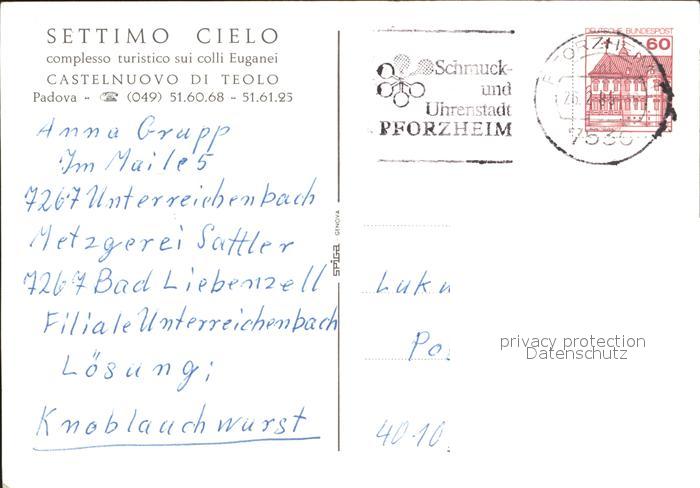 SETTIMO CIELO
complesso turistico sui colli Euganei
CASTELNUOVO DI TEOLO
Padova - ☎ (049) 51.60.68 - 51.61.25
Anna Grupp
Im Maile 5
7267 Unterreichenbach
Metzgerei Sattler
7267 Bad Liebenzell
Filiale Unterreichenbach
Lösung:
Knoblauchwurst
SPIGA GENOVA
Schmuck-
und
Uhrenstadt
PFORZHEIM
DEUTSCHE BUNDESPOST
60
PFORZHEIM
7530
Luku
Po
40 10
privacy protection
Datenschutz